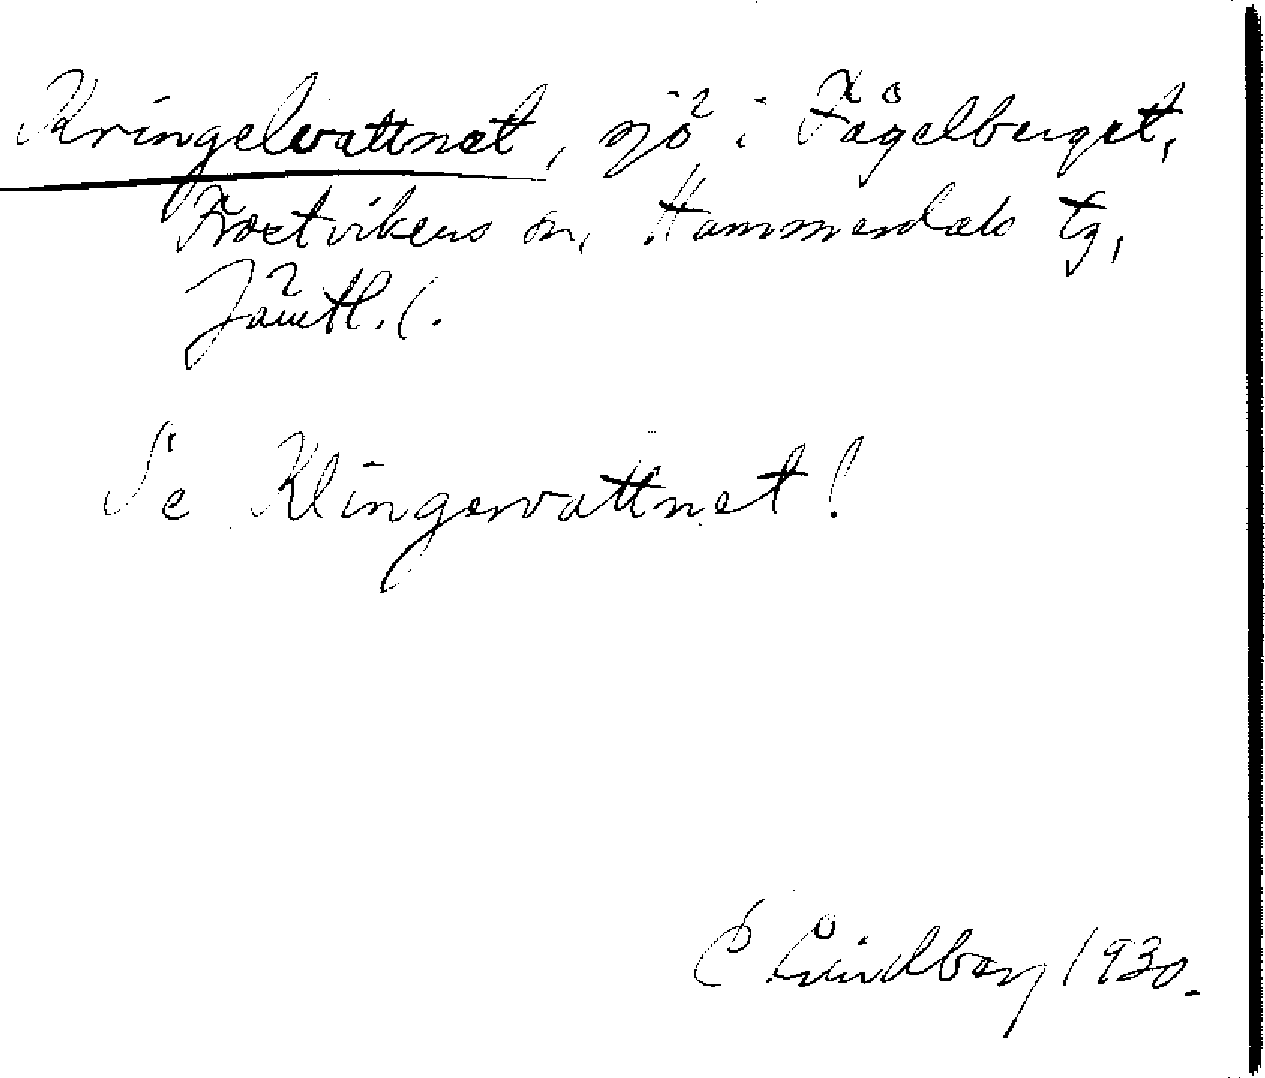 Kringelvattnet, sjö i Fågelberget,
Frostvikens sn, Hammerdals tg,
Jämtl. l.
Se Klingervattnet!
E Lindberg 1930.